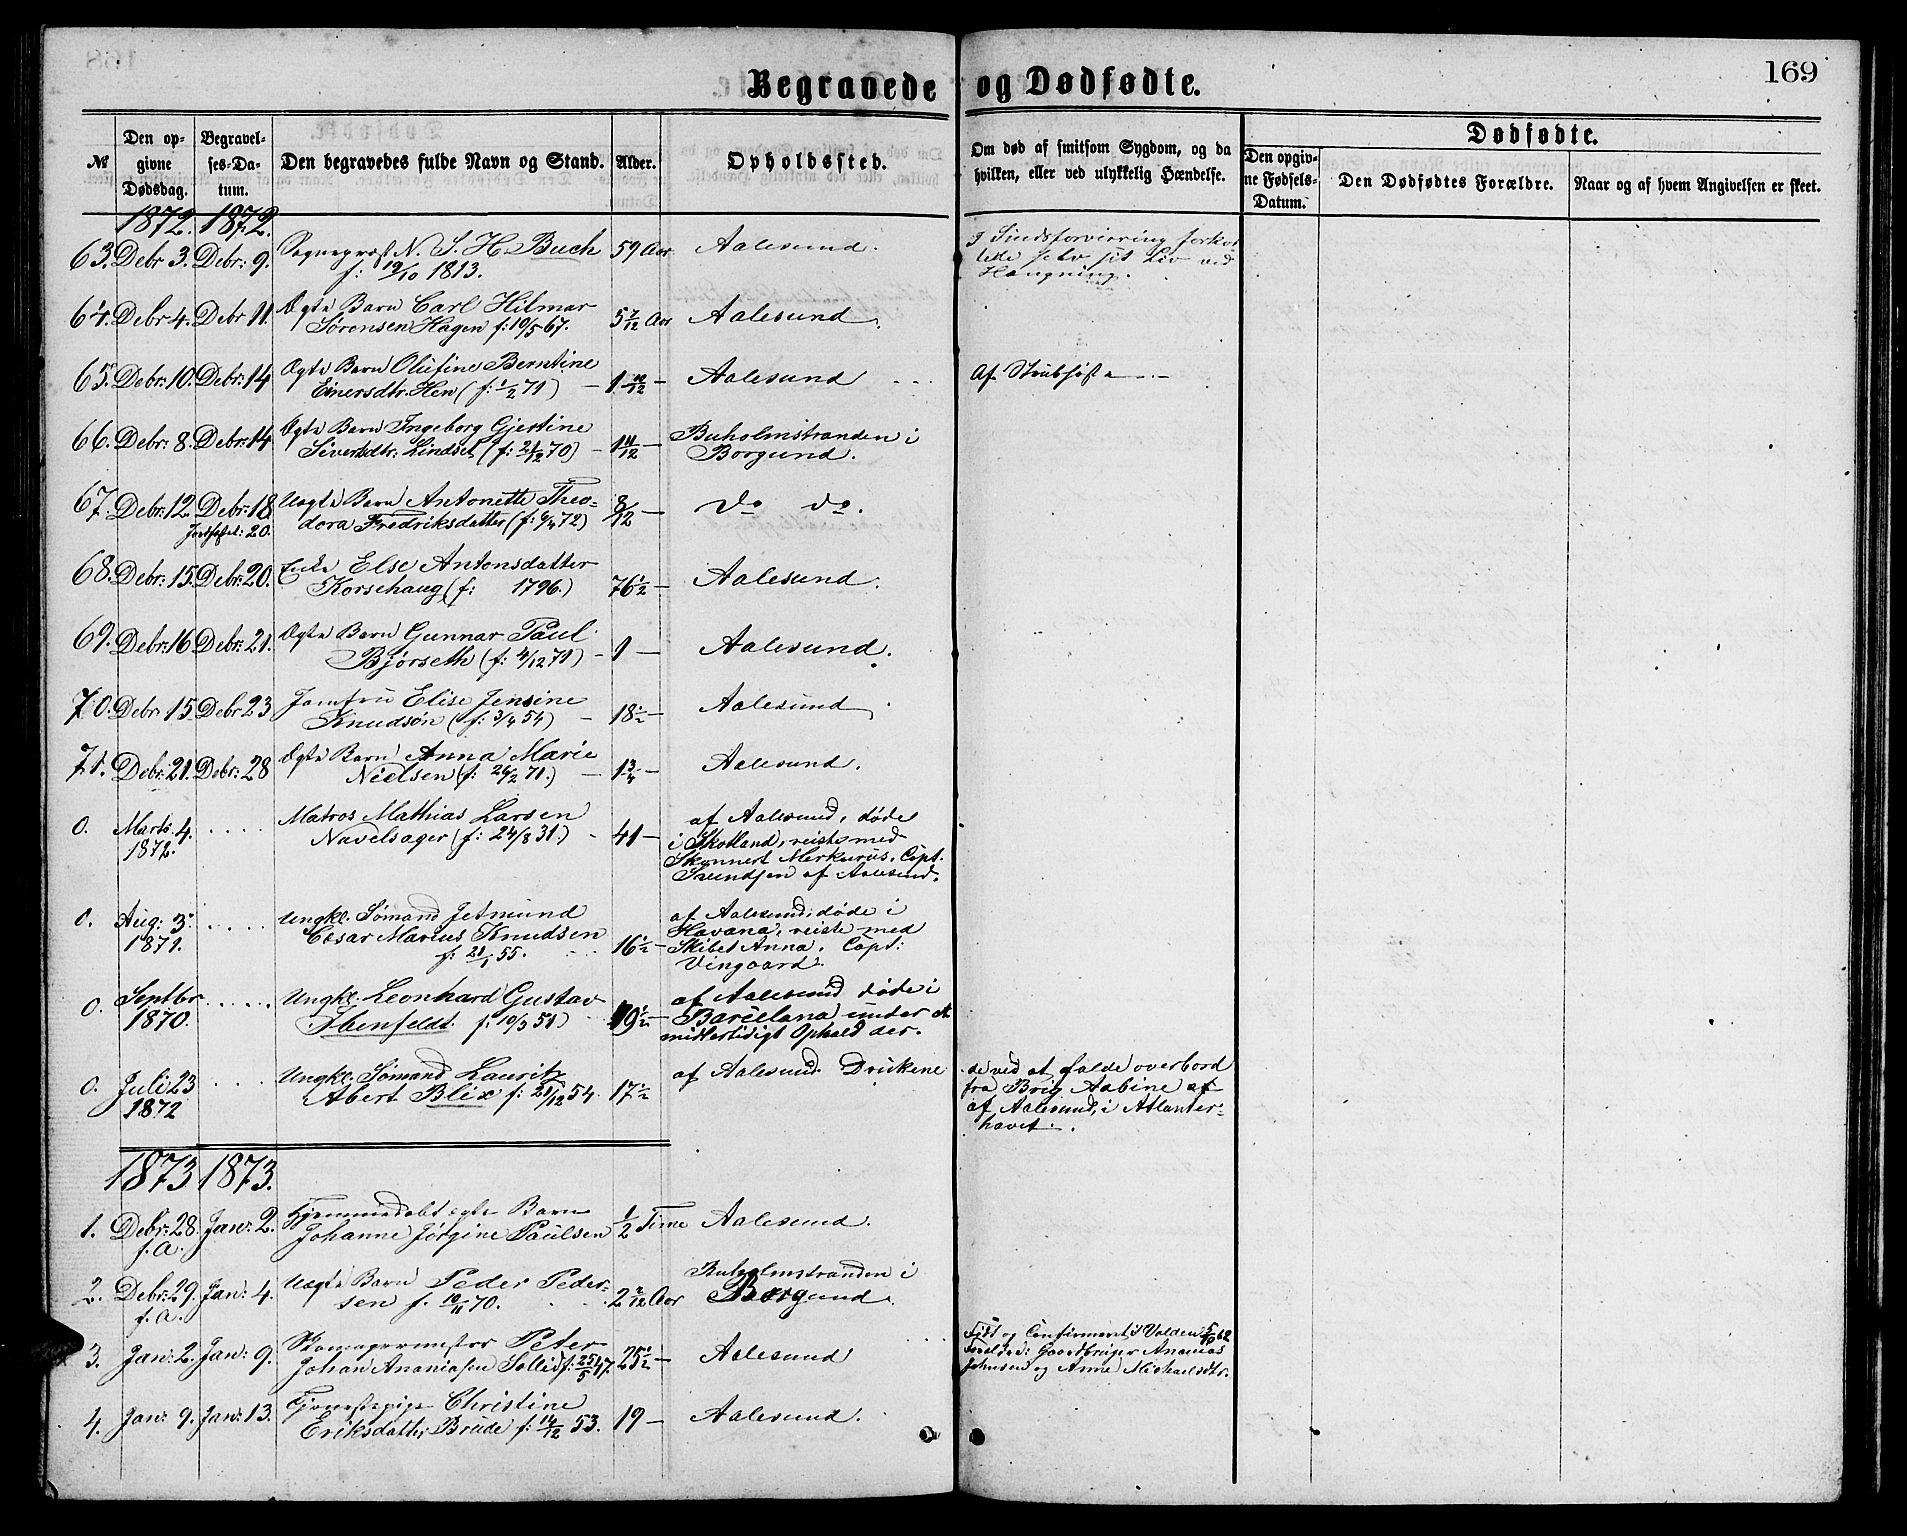 169
Begravede og Dødfødte.
№
Den op-
givne
Dødsdag.
Begravel-
ses-Da-
tum.
Den begravedes fulde Navn og Stand.
Alder.
Opholdssted.
Om død af smitsom Sygdom, og da
hvilken, eller ved ulykkelig Hændelse.
Dødfødte.
Den opgiv-
ne Fødsels-
Datum.
Den Dødfødtes Forældre.
Naar og af hvem Angivelsen er skeet.
1872. 1872.
63. Debr 3. Debr: 9. Sognepræst N. S. H. Buch 59 Aar Aalesund.
f: 19/10 1813.
I Sindsforvirring forkor
tede selv sit Liv ved
Hængning.
64. Debr 4. Debr 11. Ægte Barn Carl Hilmar 5 7/12 Aar Aalesund.
Sørensen Hagen f: 10/5 67.
65. Debr: 10. Debr: 14 Ægte Barn Olufine Berntine
Einersdtr. Hen (f: 1/2 71) – 1 10/12 – Aalesund
Af Strubhoste
66. Debr: 8. Debr: 14 Ægte Barn Ingeborg Gjertine
Siversdtr: Lindset (f: 21/12 70) – 1 11/12 –
Buholmstranden i
Borgund.
67. Debr: 12. Debr: 18 Uægte Barn Antonette Theo-
Jordfæstet: 20. dora Fredriksdatter (f: 9/4 72) 8/12 – do do.
68. Debr: 15. Debr: 20. Enke Else Antonsdatter
Korsehaug (f: 1796.) 76 1/2 – Aalesund.
69. Debr: 16 Debr: 21. Ægte Barn Gunnar Paul
Bjørseth (f: 4/12 71) – 1 – Aalesund.
70. Debr: 15 Debr 23 Jomfru Elise Jensine
Knudsøn (f: 3/4 54) – 18 1/2 – Aalesund
71. Debr: 21. Debr: 28 Ægte Barn Anna Marie
Nielsen (f: 26/2 71.) – 1 3/4 – Aalesund.
0. Marts 4.
1872.
Matros Mathias Larsen
Navelsager (f: 24/8 31.) – 41 –
af Aalesund, døde
i Skotland, reiste med
Skonnert Merkurus, Capt.
af Aalesund.
0. Aug: 3:
1871.
Ungkl. Sømand Jetmund
Cæsar Marius Knudsen
f: 21/1 55. 16 1/2 –
af Aalesund, døde i
Havana, reiste med
Skibet Anna. Capt:
Vingaard.
0. Septbr
1870.
Ungkl. Leonhard Gustav
Ibenfeldt. f: 10/3 51) 19 1/2 –
af Aalesund døde i
Barcelana under et
midlertidigt Ophold der.
0. Juli 23
1872
Ungkl. Sømand Lauritz
Abert Blix f: 21/12 54. 17 1/2
af Aalesund. Druknede
ved at falde overbord
fra Brig Aabine af
af Aalesund, i Atlanter-
havet.
1873 1873.
1. Debr: 28. Jan: 2.
f. A.
Hjemmedøbt ægte Barn
Johanne Jørgine Paulsen 1/2 Time Aalesund.
2. Debr: 29. Jan: 4.
f. a.
Uægte Barn Peder Peder-
sen f. 10/11 70. 2 2/12 Aar
Buholmstranden i
Borgund.
3. Jan: 2. Jan: 9. Skomagermester Peter
Johan Ananiasen Solli f: 25/5 47. 25 1/2 – Aalesund
Født og Confirmeret i Volden 5/10 62
Forældre: Gaardbruger Ananias
Johnsen og Anne Michaelsdtr.
4. Jan: 9. Jan: 13. Tjenestepige Christine
Eriksdatter Brude f: 14/12 53. 19 – Aalesund.